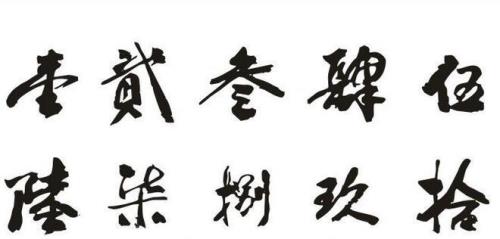 壹貳叁肆伍
陸柒捌玖拾